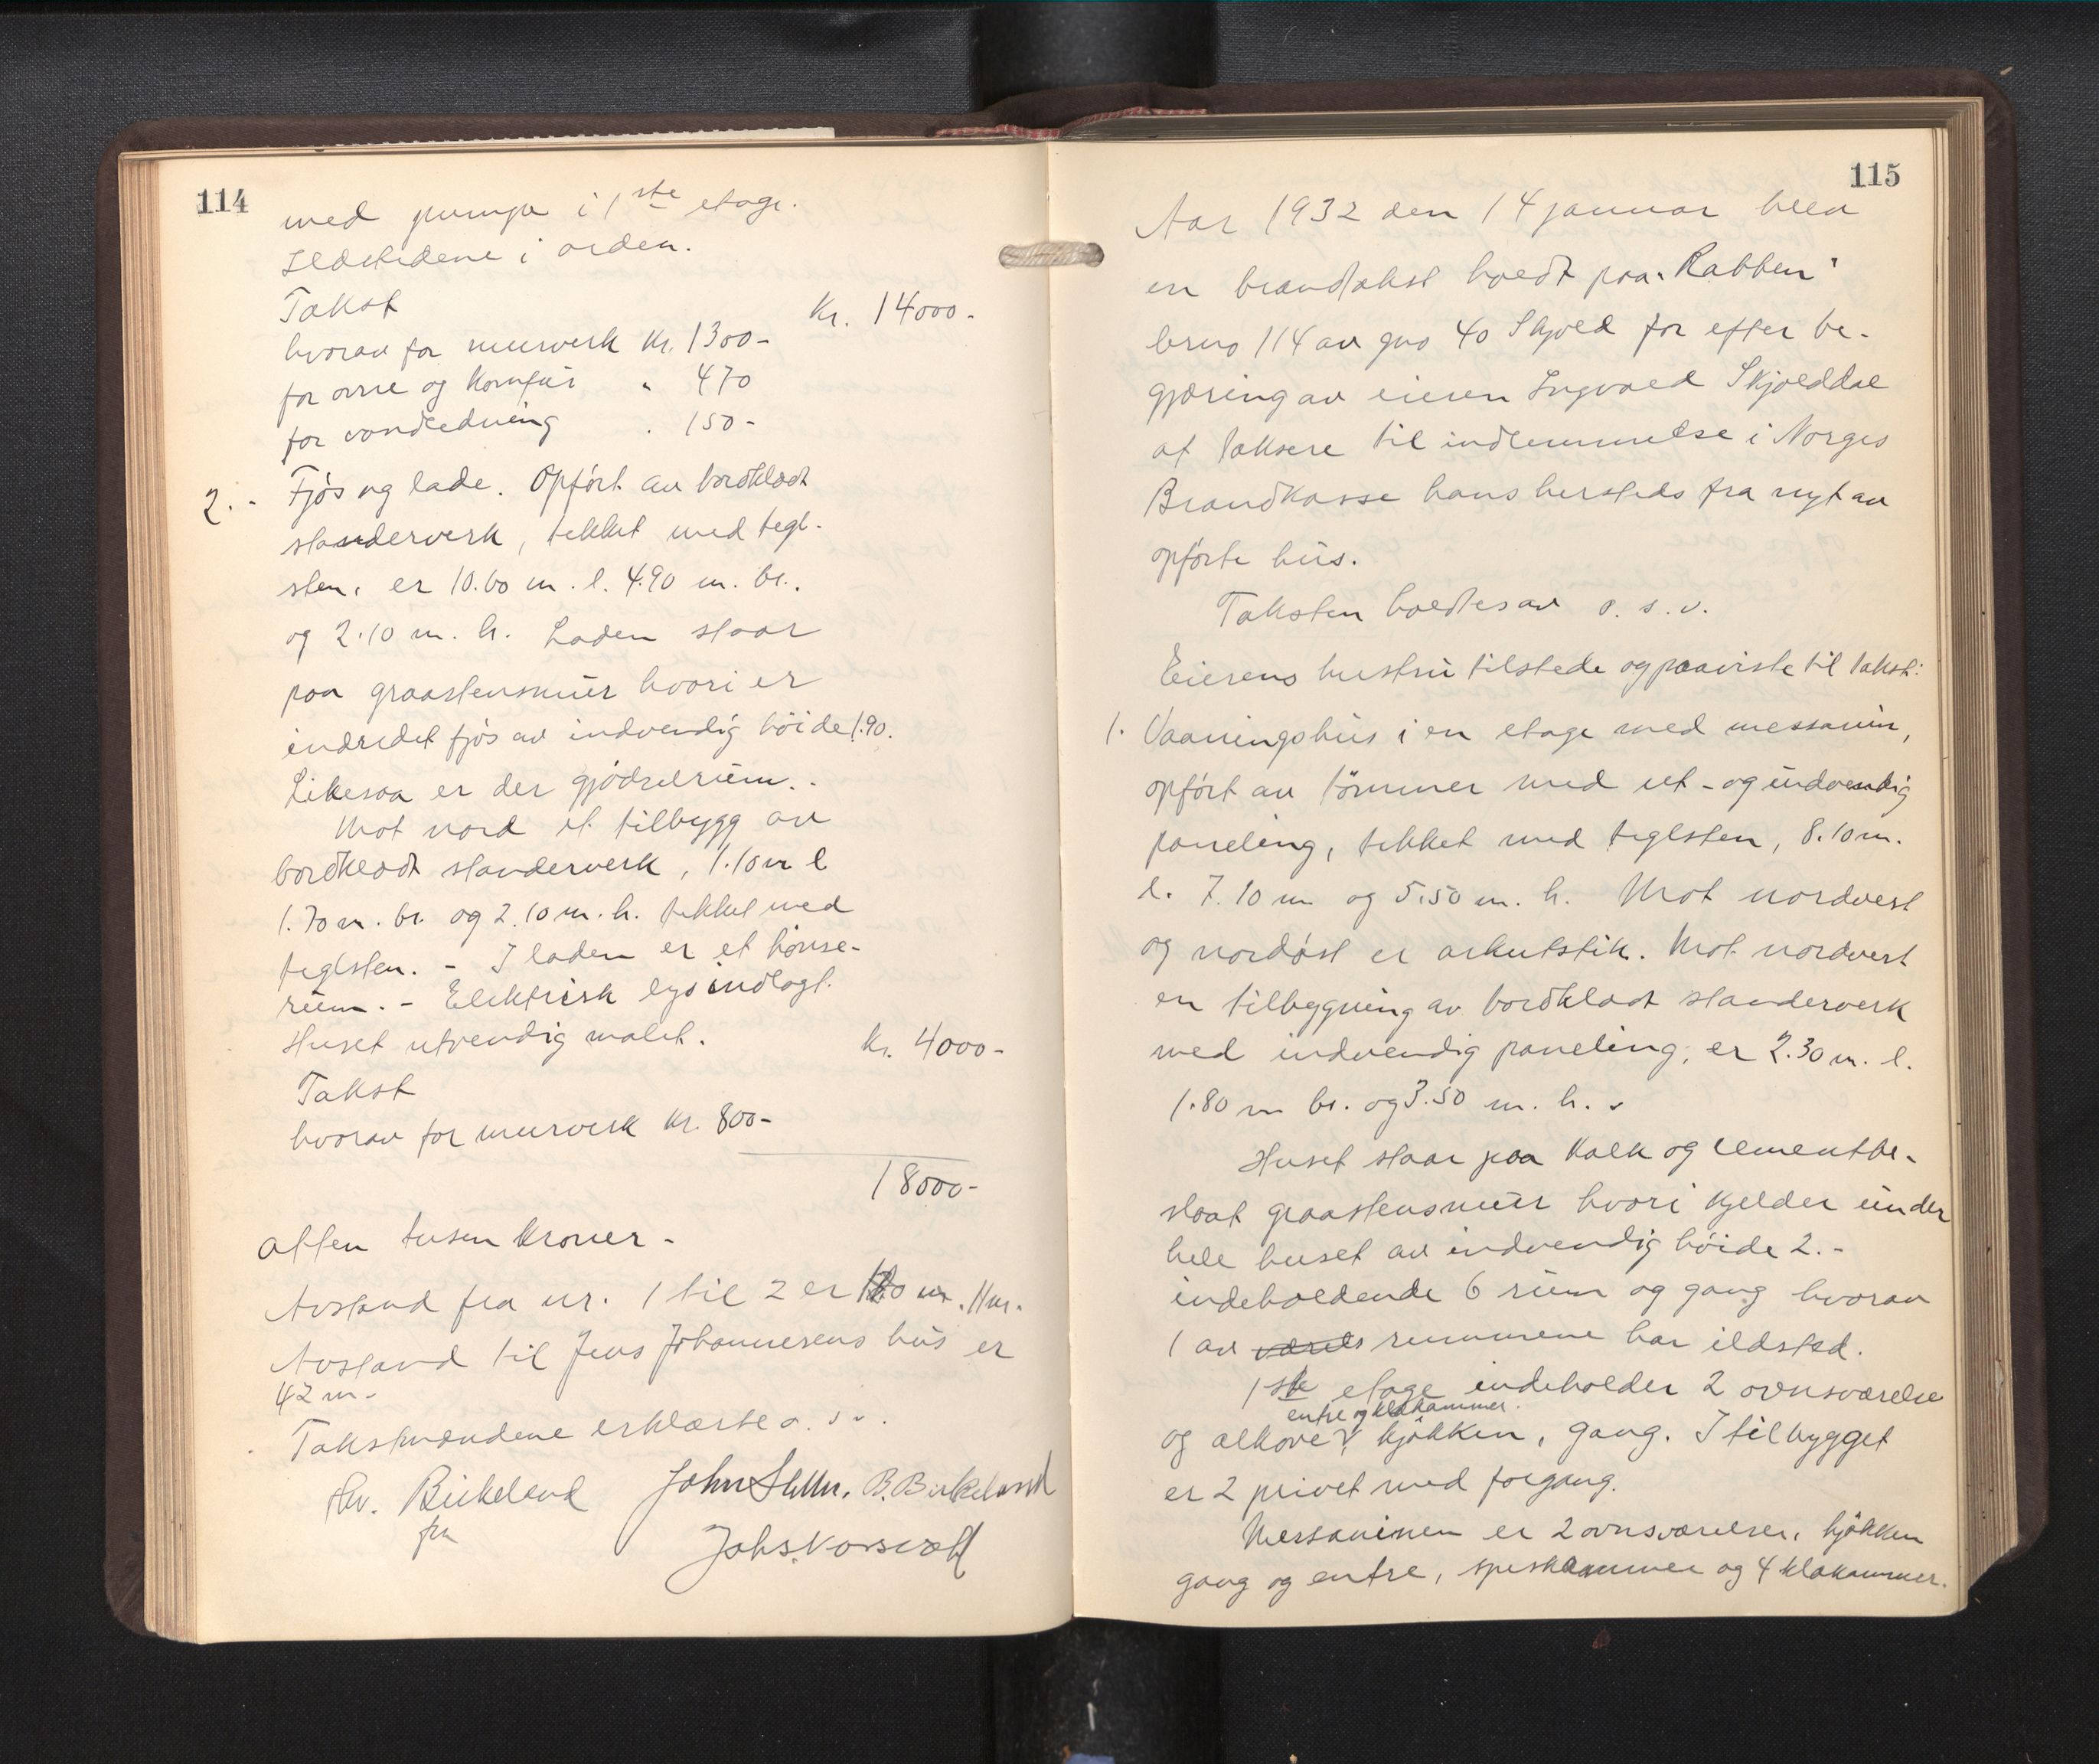 114
med pumpe i 1ste etage.
Ildstedene i orden.
Takst Kr. 14000-
hvorav for murverk Kr. 1300-
for ovne og Komfür " 470
for vandledning " 150-
2. - Fjøs og lade. Opført av bordklædt
standerverk, tekket med tegl-
sten, er 10.60 m. l. 4.90 m. br.
og 2.10 m. h. Laden staar
paa graastensmur hvori er
indredet fjøs av indvendig høide 1.90.
Likesaa er der gjødselrum. -
Mot nord et tilbygg av
bordklædt standerverk, 1.10 m l
1.70 m. br. og 2.10 m. h. tekket med
teglsten. - I laden er et hønse-
rum. - Elektrisk lys indlagt.
Huset utvendig malet.
Takst kr. 4000-
hvorav for murverk kr. 800-
18000-
Atten tusen kroner -
Avstand fra nr. 1 til 2 er m. 11 m.
Avstand til Jens Johannesens hus er
42 m-
Takstmændene erklærte o. s. v.
Birkeland John B. Birkeland
Johs.
115
Aar 1932 den 14 januar blev
en brandtakst holdt paa "Rabben"
brno 114 av gno 40 Skjold for efter be-
gjæring av eieren Ingvald Skjolddal
at taksere til indlemmelse i Norges
Brandkasse hans hersteds fra nyt av
opførte hus.
Taksten holdtes av o. s. v.
Eierens hustru tilstede og paaviste til takst:
1. Vaaningshus i en etage med messanin,
opført av tømmer med ut- og indvendig
paneling, tekket med teglsten, 8.10 m.
l. 7.10 m og 5.50 m. h. Mot nordvest
og nordøst er arkutstik. Mot nordvest
en tilbygning av bordklædt standerverk
med indvendig paneling, er 2.30 m. l.
1.80 m br. og 3.50 m. h.
Huset staar paa kalk og cementbe-
slaat graastensmur hvori kjelder under
hele huset av indvendig høide 2. -
indeholdende 6 rum og gang hvorav
1 av rummene har ildsted.
1ste etage indeholder 2 ovnsværelse
entre og klækammer.
og alkove, kjøkken, gang. I tilbygget
er 2 privet med forgang.
Messaninen er 2 ovnsværelser, kjøkken
gang og entre, speskammer og 4 klækammer.